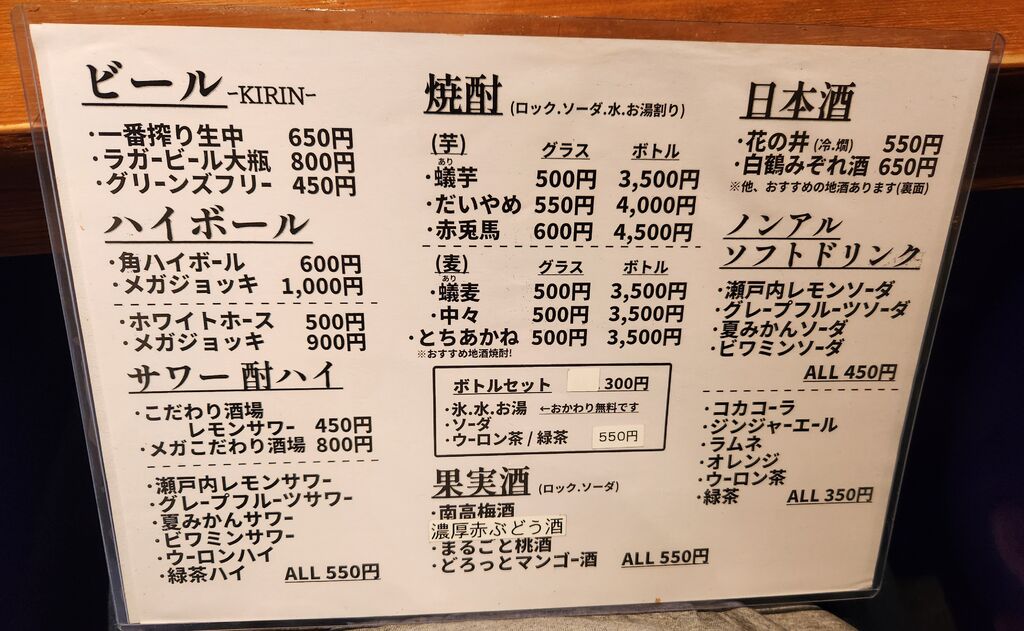 ビール -KIRIN-
・一番搾り生中 650円
・ラガービール大瓶 800円
・グリーンズフリー 450円
ハイボール
・角ハイボール 600円
・メガジョッキ 1,000円
・ホワイトホース 500円
・メガジョッキ 900円
サワー 酎ハイ
・こだわり酒場
レモンサワー 450円
・メガこだわり酒場 800円
・瀬戸内レモンサワー
・グレープフルーツサワー
・夏みかんサワー
・ビワミンサワー
・ウーロンハイ
・緑茶ハイ ALL 550円
焼酎 (ロック.ソーダ.水.お湯割り)
(芋) グラス ボトル
あり
・蟻芋 500円 3,500円
・だいやめ 550円 4,000円
・赤兎馬 600円 4,500円
(麦) グラス ボトル
あり
・蟻麦 500円 3,500円
・中々 500円 3,500円
・とちあかね 500円 3,500円
※おすすめ地酒焼酎!
ボトルセット 300円
・氷.水.お湯 ←おかわり無料です
・ソーダ
・ウーロン茶 / 緑茶 550円
果実酒 (ロック.ソーダ)
・南高梅酒
濃厚赤ぶどう酒
・まるごと桃酒
・どろっとマンゴー酒 ALL 550円
日本酒
・花の井 (冷.燗) 550円
・白鶴みぞれ酒 650円
※他、おすすめの地酒あります(裏面)
ノンアル
ソフトドリンク
・瀬戸内レモンソーダ
・グレープフルーツソーダ
・夏みかんソーダ
・ビワミンソーダ
ALL 450円
・コカコーラ
・ジンジャーエール
・ラムネ
・オレンジ
・ウーロン茶
・緑茶 ALL 350円